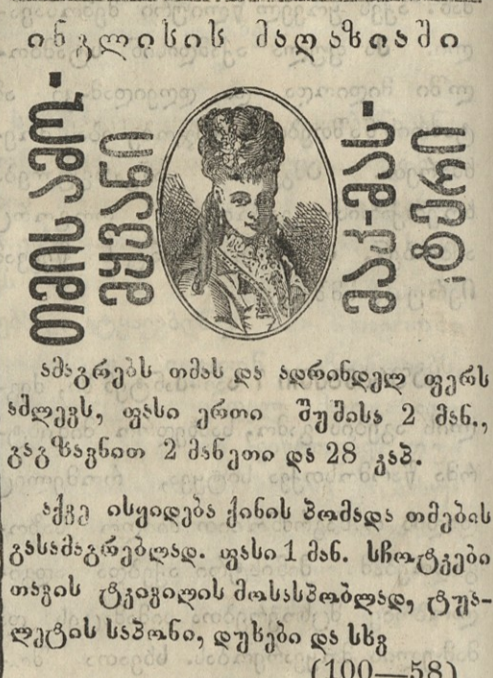 ინგლისის მაღაზიაში
თმის ამო-
მყვანი
მაკ-მას-
ტერი
ამაგრებს თმას და ადრინდელ ფერს
აძლევს, ფასი ერთი შუშისა 2 მან.,
გაგზავნით 2 მანეთი და 28 კაპ.
აქვე ისყიდება ქინის პომადა თმების
გასამაგრებლად. ფასი 1 მან. სჩოტკები
თავის ტკივილის მოსასპობლად, ტუა-
ლეტის საპონი, დუხები და სხვ
(100—58)